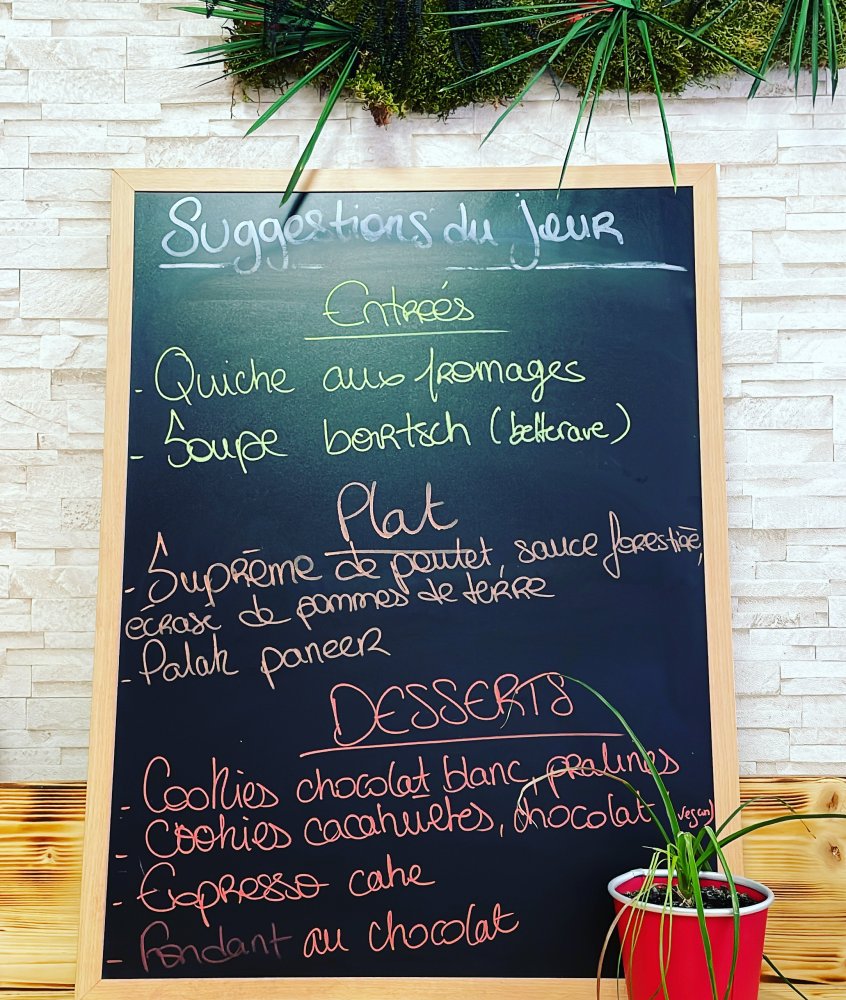 Suggestions du jour
Entreés
- Quiche aux fromages
- Soupe bortsch (betterave)
Plat
- Suprême de poulet, sauce forestière,
écrasé de pommes de terre
- Palak paneer
DESSERTS
- Cookies chocolat blanc, pralines
- Cookies cacahuètes, chocolat vegan)
- Expresso cake
- Fondant au chocolat